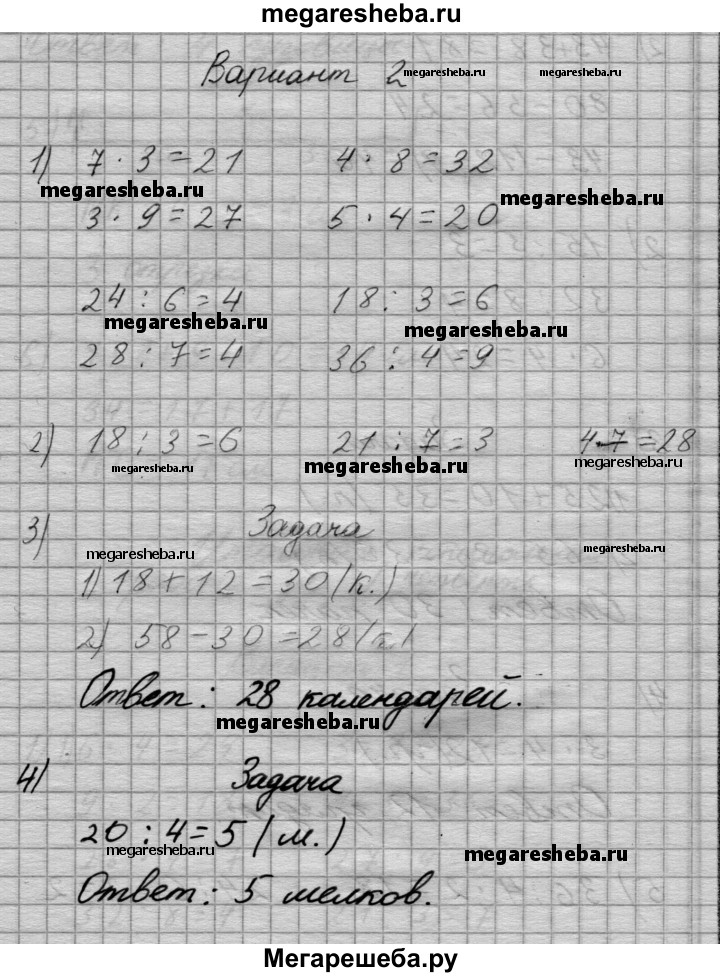 megaresheba.ru
Вариант 2 megaresheba.ru megaresheba.ru
1) 7 · 3 = 21 4 · 8 = 32
megaresheba.ru megaresheba.ru
3 · 9 = 27 5 · 4 = 20
24 : 6 = 4 18 : 3 = 6
megaresheba.ru megaresheba.ru
28 : 7 = 4 36 : 4 = 9
2) 18 : 3 = 6 21 : 7 = 3 4 · 7 = 28
megaresheba.ru megaresheba.ru megaresheba.ru
3) Задача
megaresheba.ru megaresheba.ru
1) 18 + 12 = 30 (к.)
2) 58 - 30 = 28 (к)
Ответ: 28 календарей.
megaresheba.ru
4) Задача
20 : 4 = 5 (м.)
megaresheba.ru megaresheba.ru
Ответ: 5 мелков.
Мегарешеба.ру